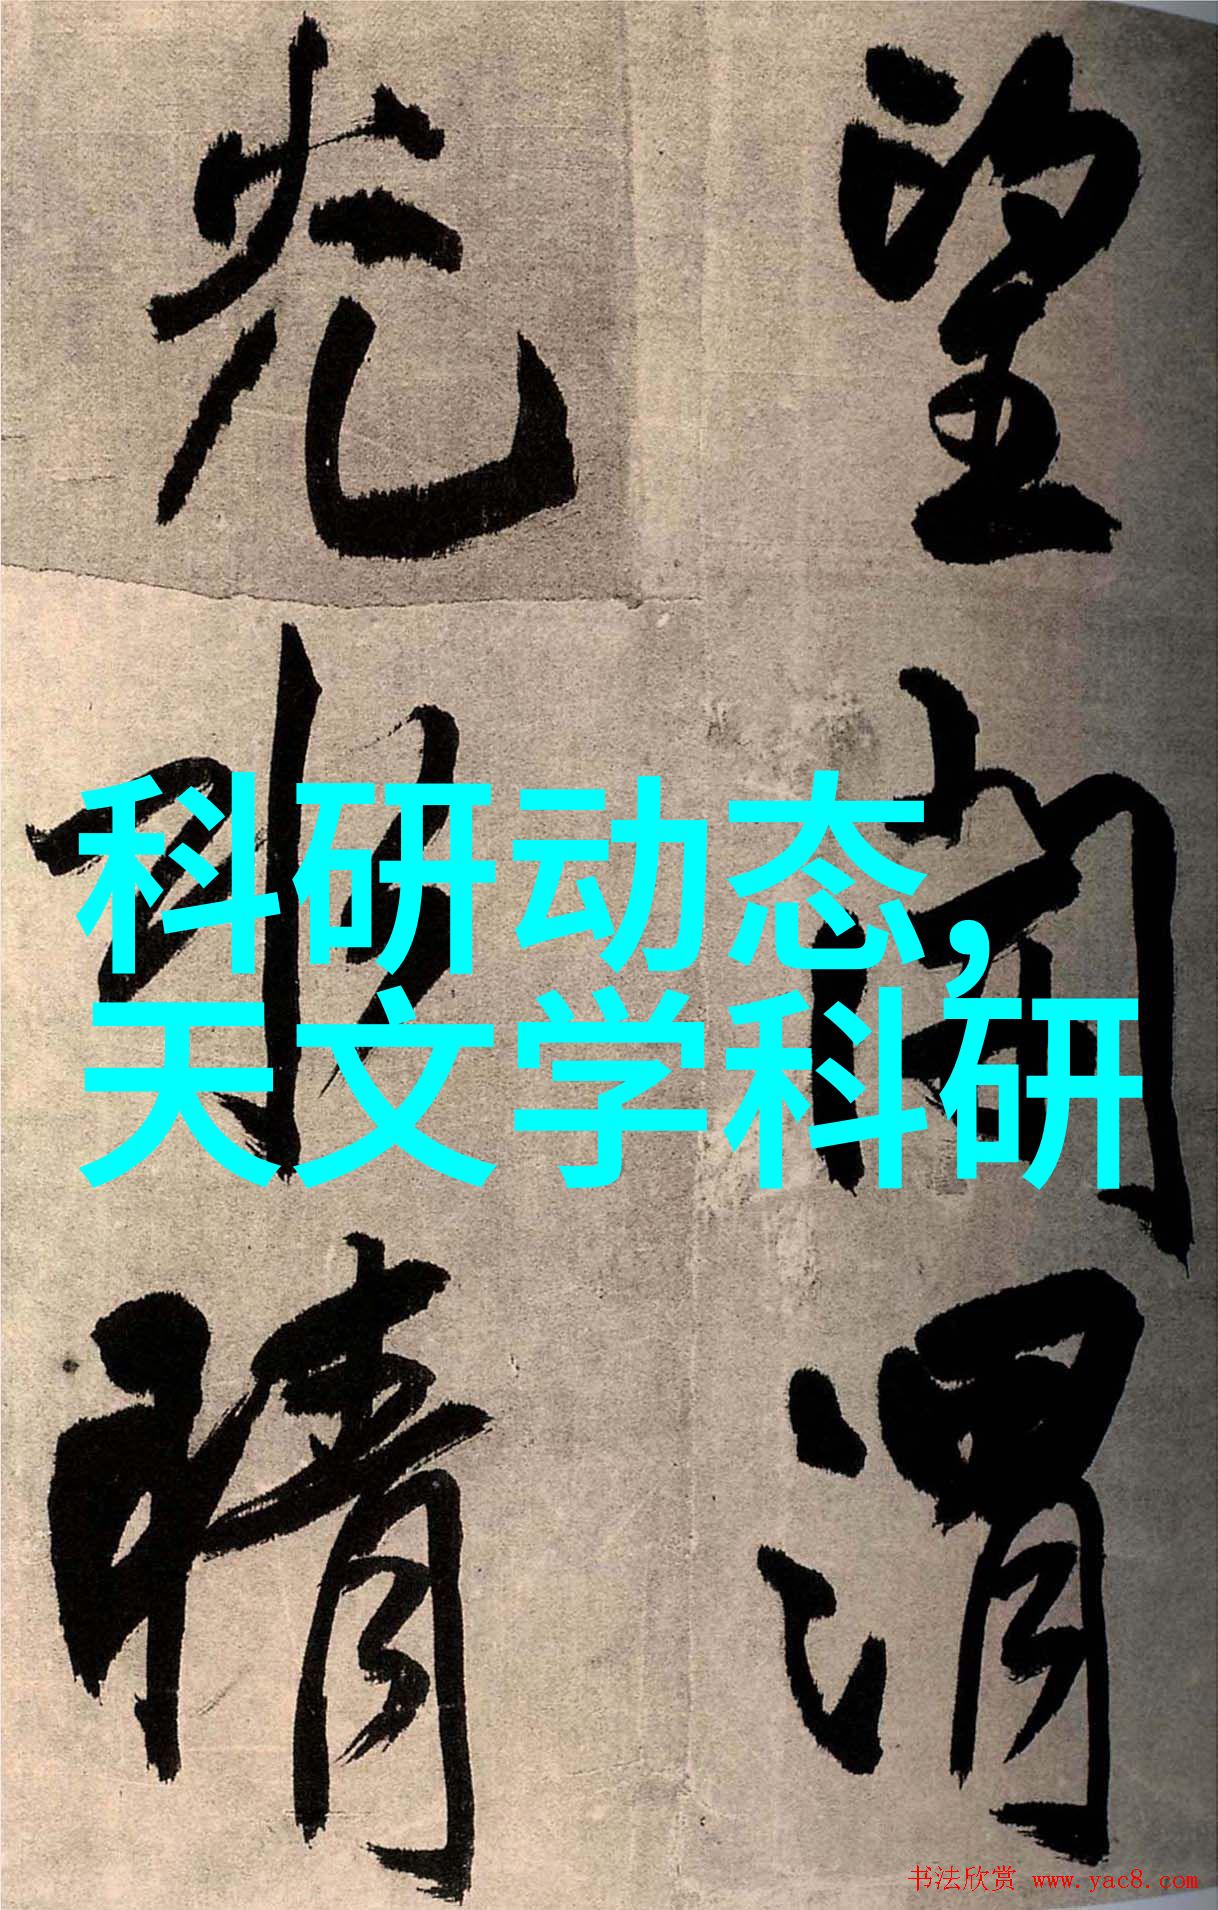 望 渭
光 晴
科研动态,
天文学科研
书法欣赏 www.yac8.com